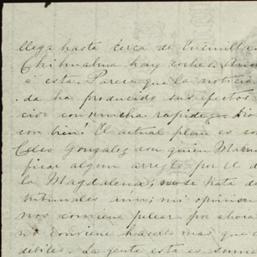 llega hasta cerca de
Chihuahua hay coches,
á esta. Parece que la noticia
da ha producido sus efectos
cios con mucha rapidez.
con bien! El actual plan es
Celso Gonzalez con quien
ficar algun arreglo por el
la Magdalena; no se trata de
tribunales mi opinion
nos conviene pelear por ahora
no conviene hacerles mas que
débiles. La gente está